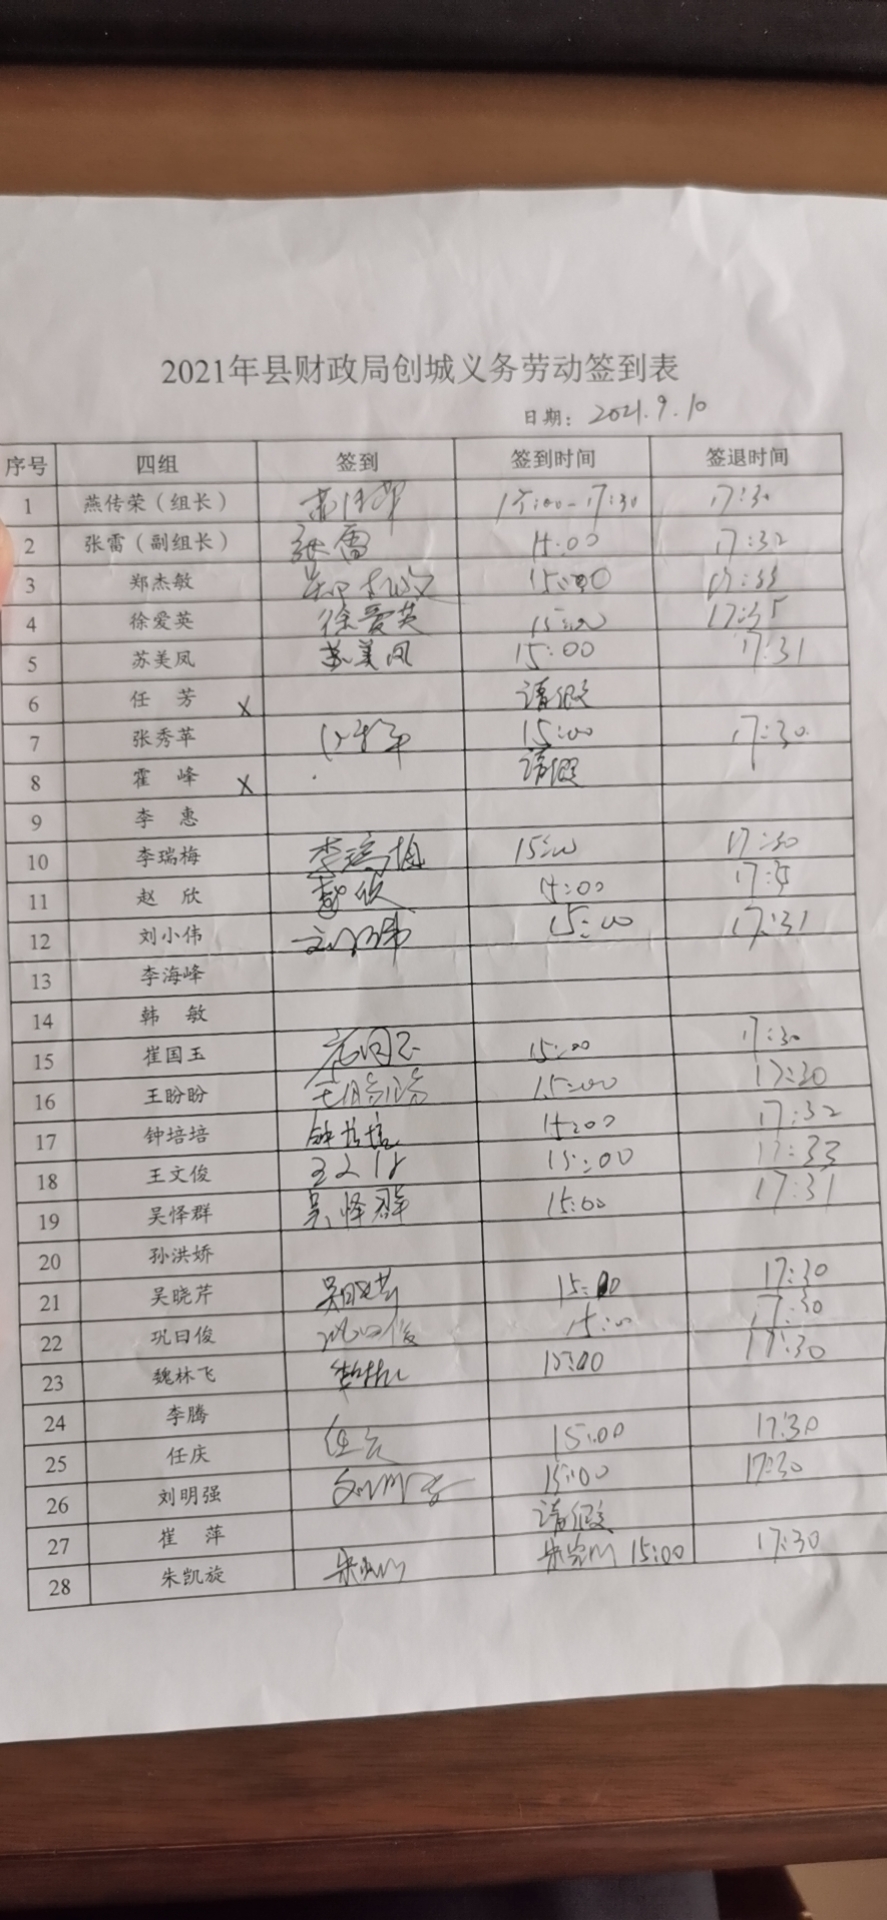 2021年县财政局创城义务劳动签到表
日期：2021.9.10
序号 四组 签到 签到时间 签退时间
1 燕传荣（组长） 15:00-17:30 17:30
2 张雷（副组长） 张雷 17:32
3 郑杰敏 15:00 17:33
4 徐爱英 徐爱英 15:00 17:35
5 苏美凤 苏美凤 15:00 17:31
6 任 芳 X 请假
7 张秀苹 15:00 17:30
8 霍 峰 X 请假
9 李 惠
10 李瑞梅 李瑞梅 15:00 17:30
11 赵 欣 赵欣
12 刘小伟 刘小伟 15:00 17:31
13 李海峰
14 韩 敏
15 崔国玉 崔国玉 15:00 17:30
16 王盼盼 王盼盼 15:00 17:30
17 钟培培 钟培培 17:32
18 王文俊 王文俊 15:00 17:33
19 吴怿群 吴怿群 15:00 17:31
20 孙洪娇
21 吴晓芹 吴晓芹 15:00 17:30
22 巩曰俊 巩曰俊 15:00 17:30
23 魏林飞 15:00 17:30
24 李腾
25 任庆 任庆 15:00 17:30
26 刘明强 15:00 17:30
27 崔 萍 请假
28 朱凯旋 15:00 17:30